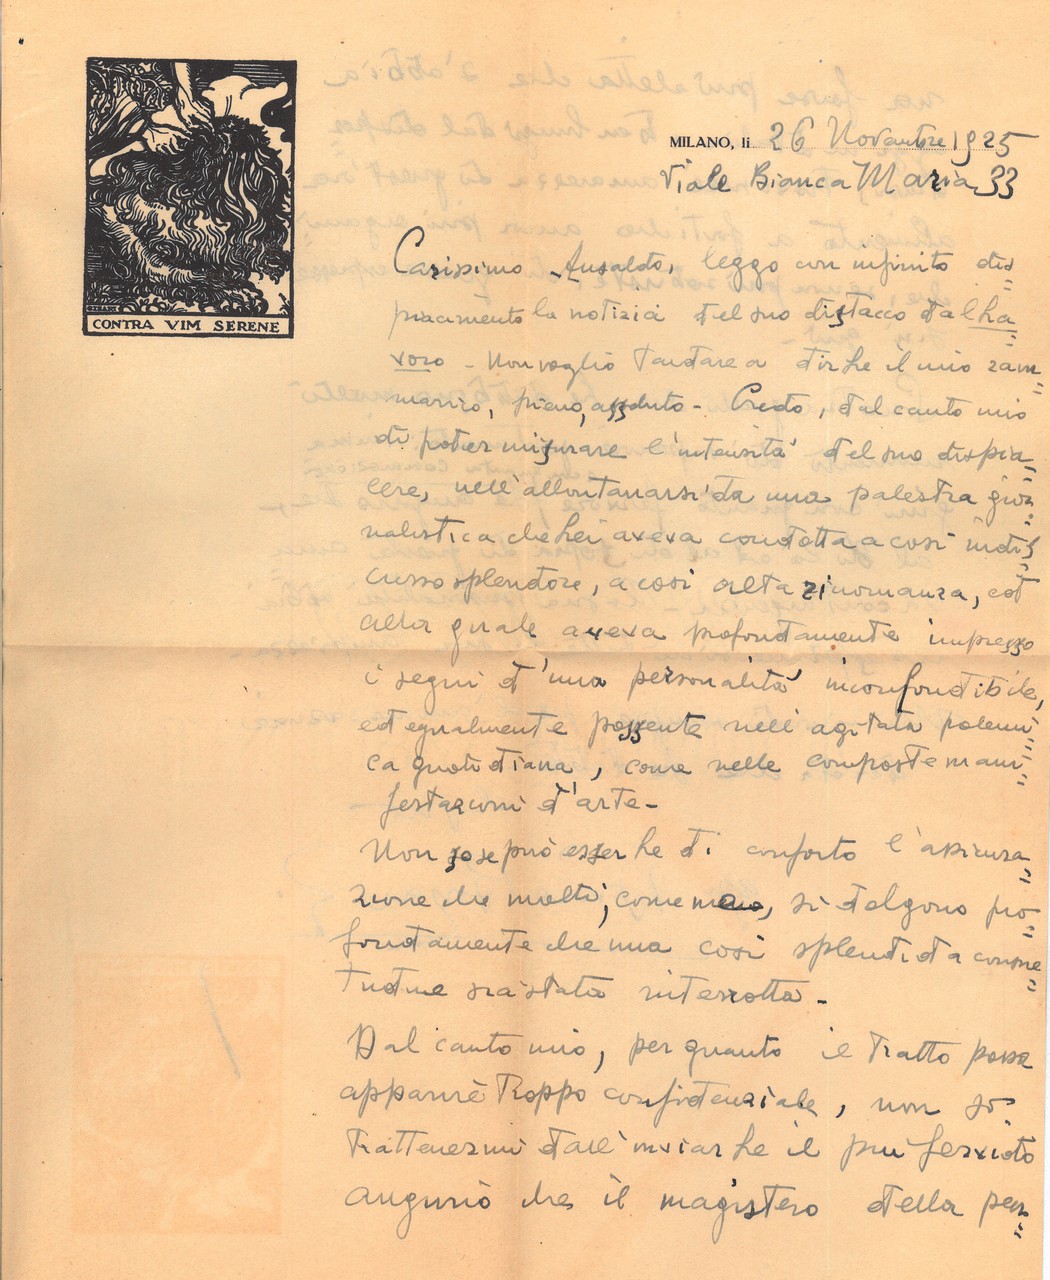 CONTRA VIM SERENE
MILANO, li 26 Novembre 1925
Viale Bianca Maria 33
Carissimo Ansaldo, leggo con infinito dis=
piacimento la notizia del suo distacco dal La=
voro - Non voglio tardare a dirLe il mio ram=
marico, pieno, assoluto - Credo, dal canto mio
di poter misurare l'intensità del suo dispia=
cere, nell'allontanarsi da una palestra gior=
nalistica che Lei aveva condotta a così indis=
cusso splendore, a così alta rinomanza, ed
alla quale aveva profondamente impresso
i segni d'una personalità inconfondibile,
ed egualmente possente nell'agitata polemi=
ca quotidiana, come nelle composte mani=
festazioni d'arte -
Non so se può esserLe di conforto l'assicura=
zione che molti, come me, si dolgono pro=
fondamente che una così splendida consue=
tudine sia stata interrotta -
Dal canto mio, per quanto il tratto possa
apparire troppo confidenziale, non so
trattenermi dall'inviarLe il più fervido
augurio che il magistero della pen=